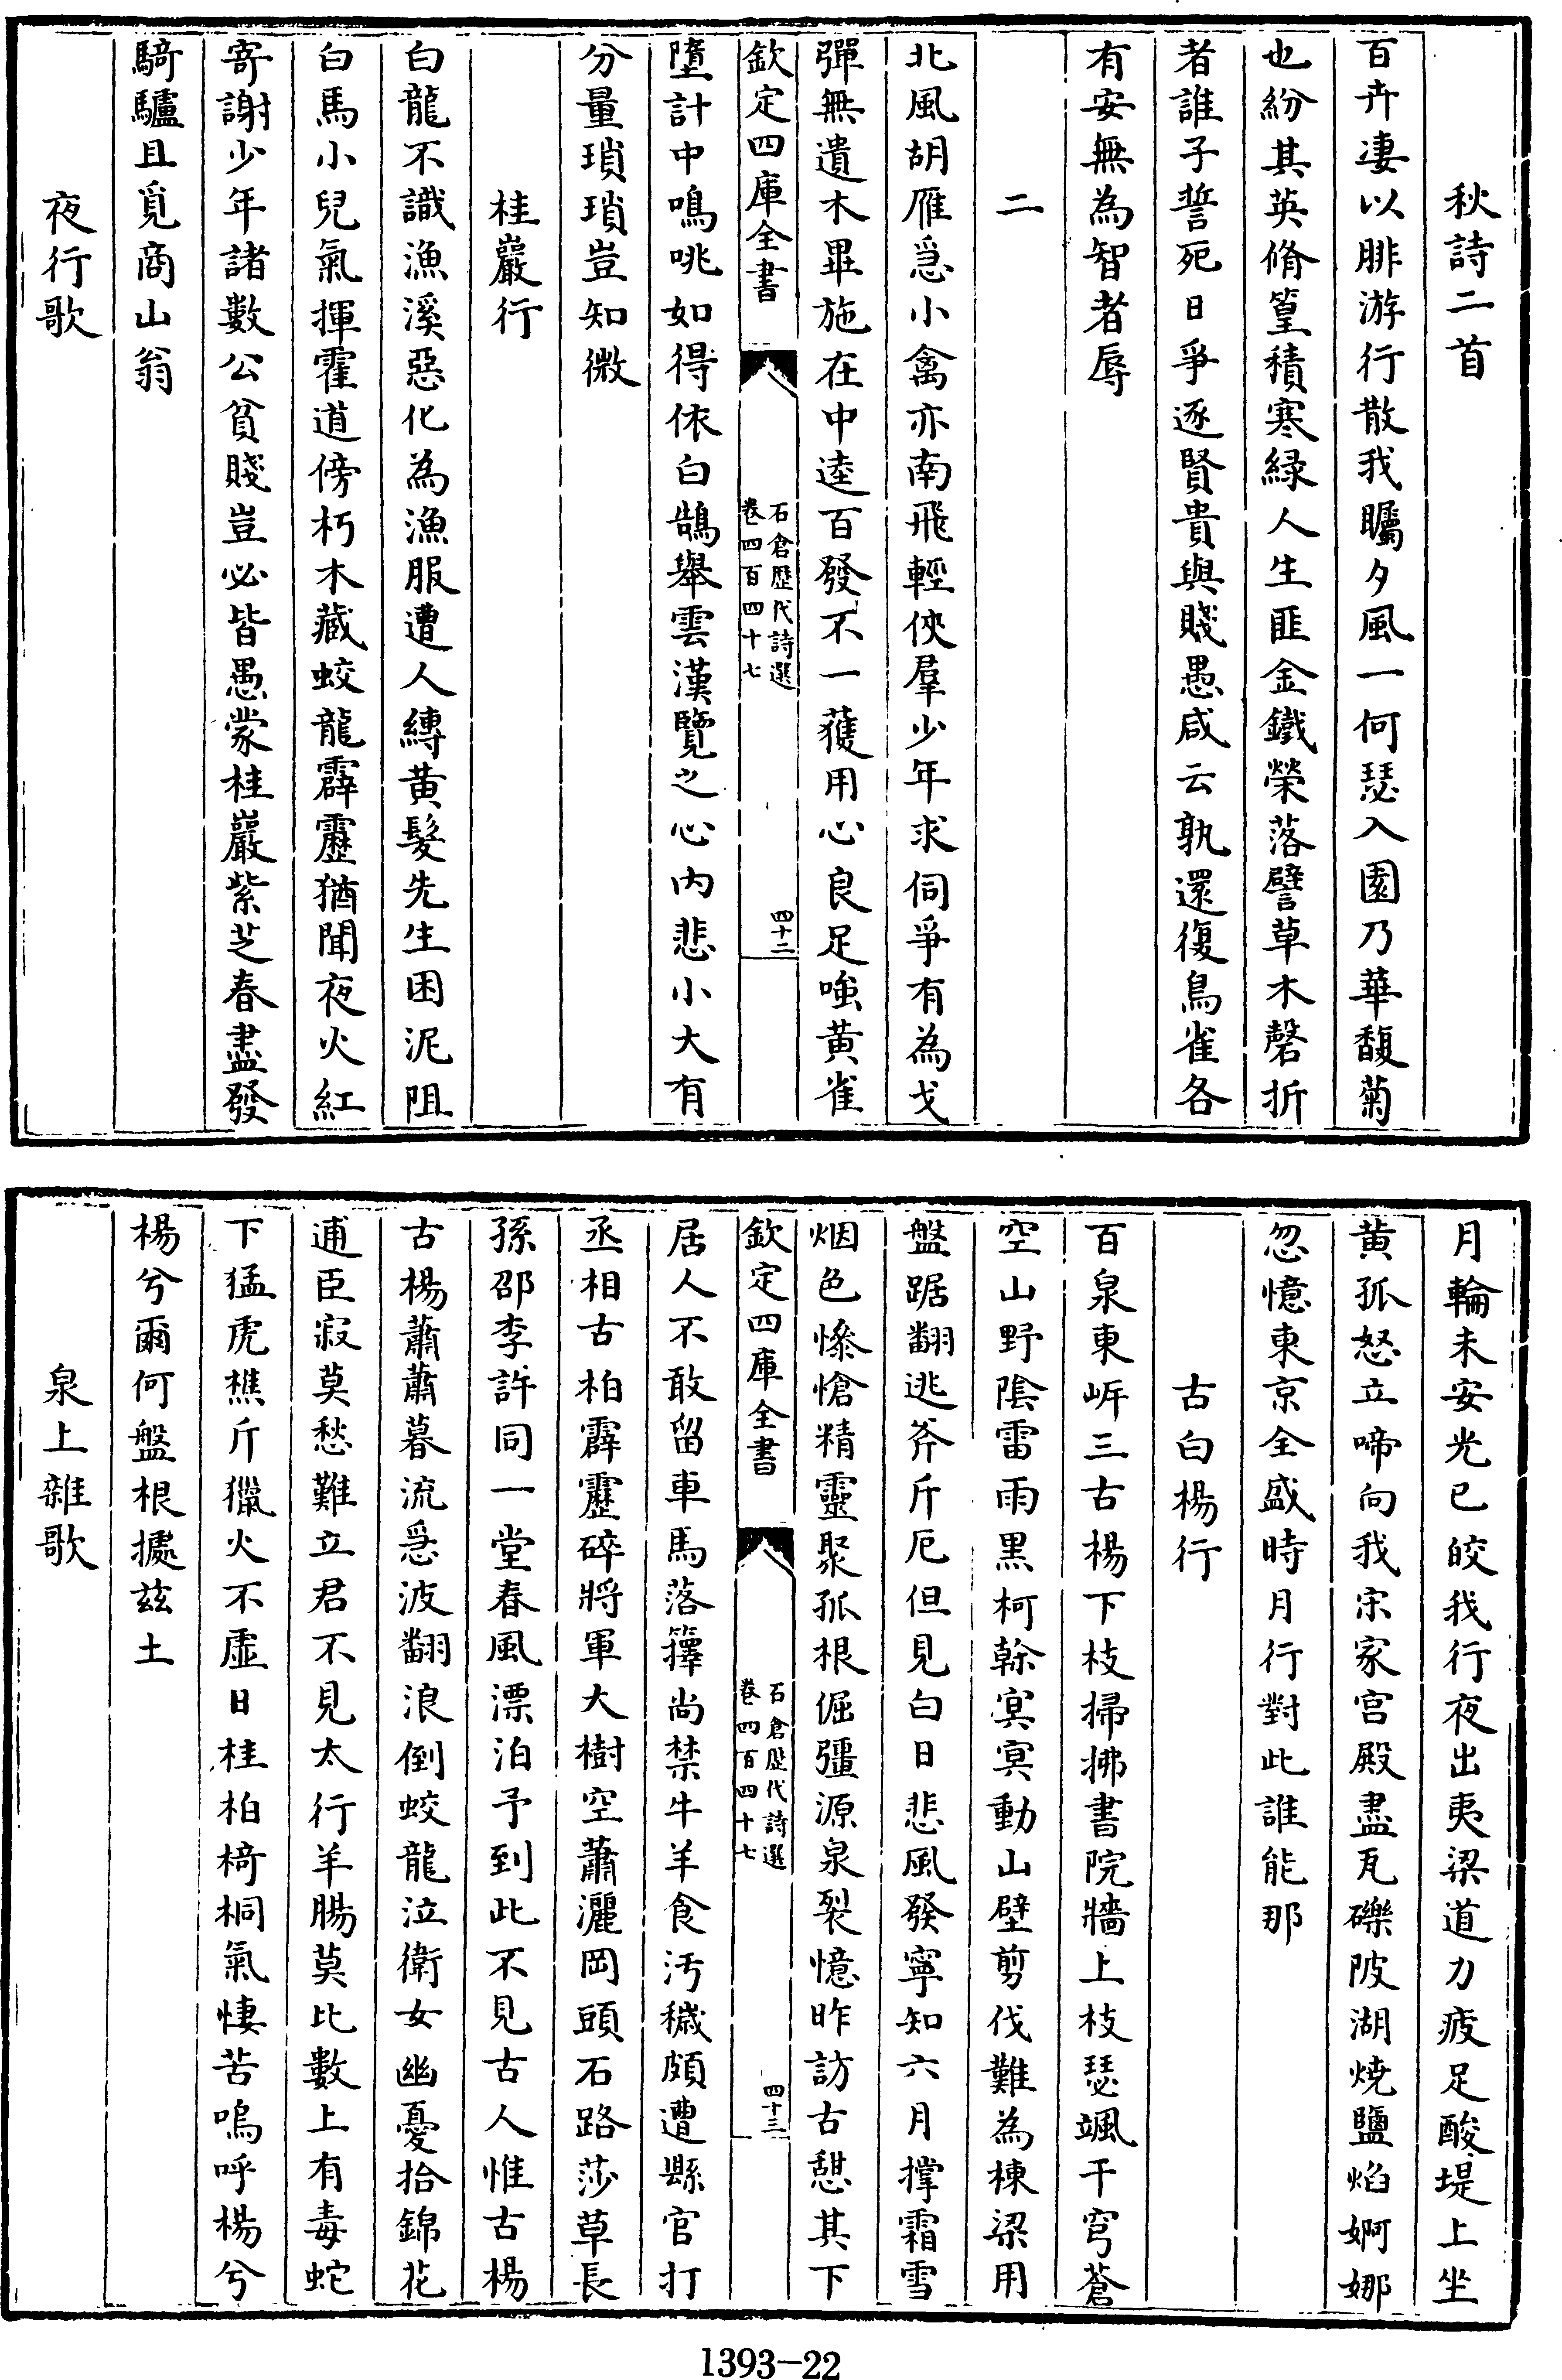 秋詩二首
百卉凄以腓游行散我矚夕風一何瑟入園乃華馥菊
也紛其英脩篁積寒緑人生匪金鐵榮落譬草木磬折
者誰子誓死日爭逐賢貴與賤愚咸云孰還復鳥雀各
有安無為智者辱
二
北風胡雁急小禽亦南飛輕俠羣少年求伺爭有為戈
彈無遺木畢施在中逵百發不一獲用心良足嗤黄雀
欽定四庫全書
石倉歴代詩選
卷四百四十七
四十二
墮計中鳴咷如得依白鵠舉雲漢覽之心内悲小大有
分量瑣瑣豈知微
桂巖行
白龍不識漁溪惡化為漁服遭人縛黄髮先生困泥阻
白馬小兒氣揮霍道傍朽木藏蛟龍霹靂猶聞夜火紅
寄謝少年諸數公貧賤豈必皆愚蒙桂巖紫芝春盡發
騎驢且覓商山翁
夜行歌
月輪未安光已皎我行夜出夷梁道力疲足酸堤上坐
黄孤怒立啼向我宋家宫殿盡瓦礫陂湖燒鹽焰婀娜
忽憶東京全盛時月行對此誰能那
古白楊行
百泉東㟁三古楊下枝掃拂書院牆上枝瑟颯干穹蒼
空山野陰雷雨黒柯榦冥冥動山壁剪伐難為棟梁用
盤踞翻逃斧斤厄但見白日悲風發寧知六月撑霜雪
烟色慘愴精靈聚孤根倔彊源泉裂憶昨訪古憇其下
欽定四庫全書
石倉歴代詩選
卷四百四十七
四十三
居人不敢留車馬落籜尚禁牛羊食汚穢頗遭縣官打
丞相古柏霹靂碎將軍大樹空蕭灑岡頭石路莎草長
孫邵李許同一堂春風漂泊予到此不見古人惟古楊
古楊蕭蕭暮流急波翻浪倒蛟龍泣衛女幽憂拾錦花
逋臣寂莫愁難立君不見太行羊腸莫比數上有毒蛇
下猛虎樵斤獵火不虚日桂柏椅桐氣悽苦嗚呼楊兮
楊兮爾何盤根據兹土
泉上雜歌
1393-22